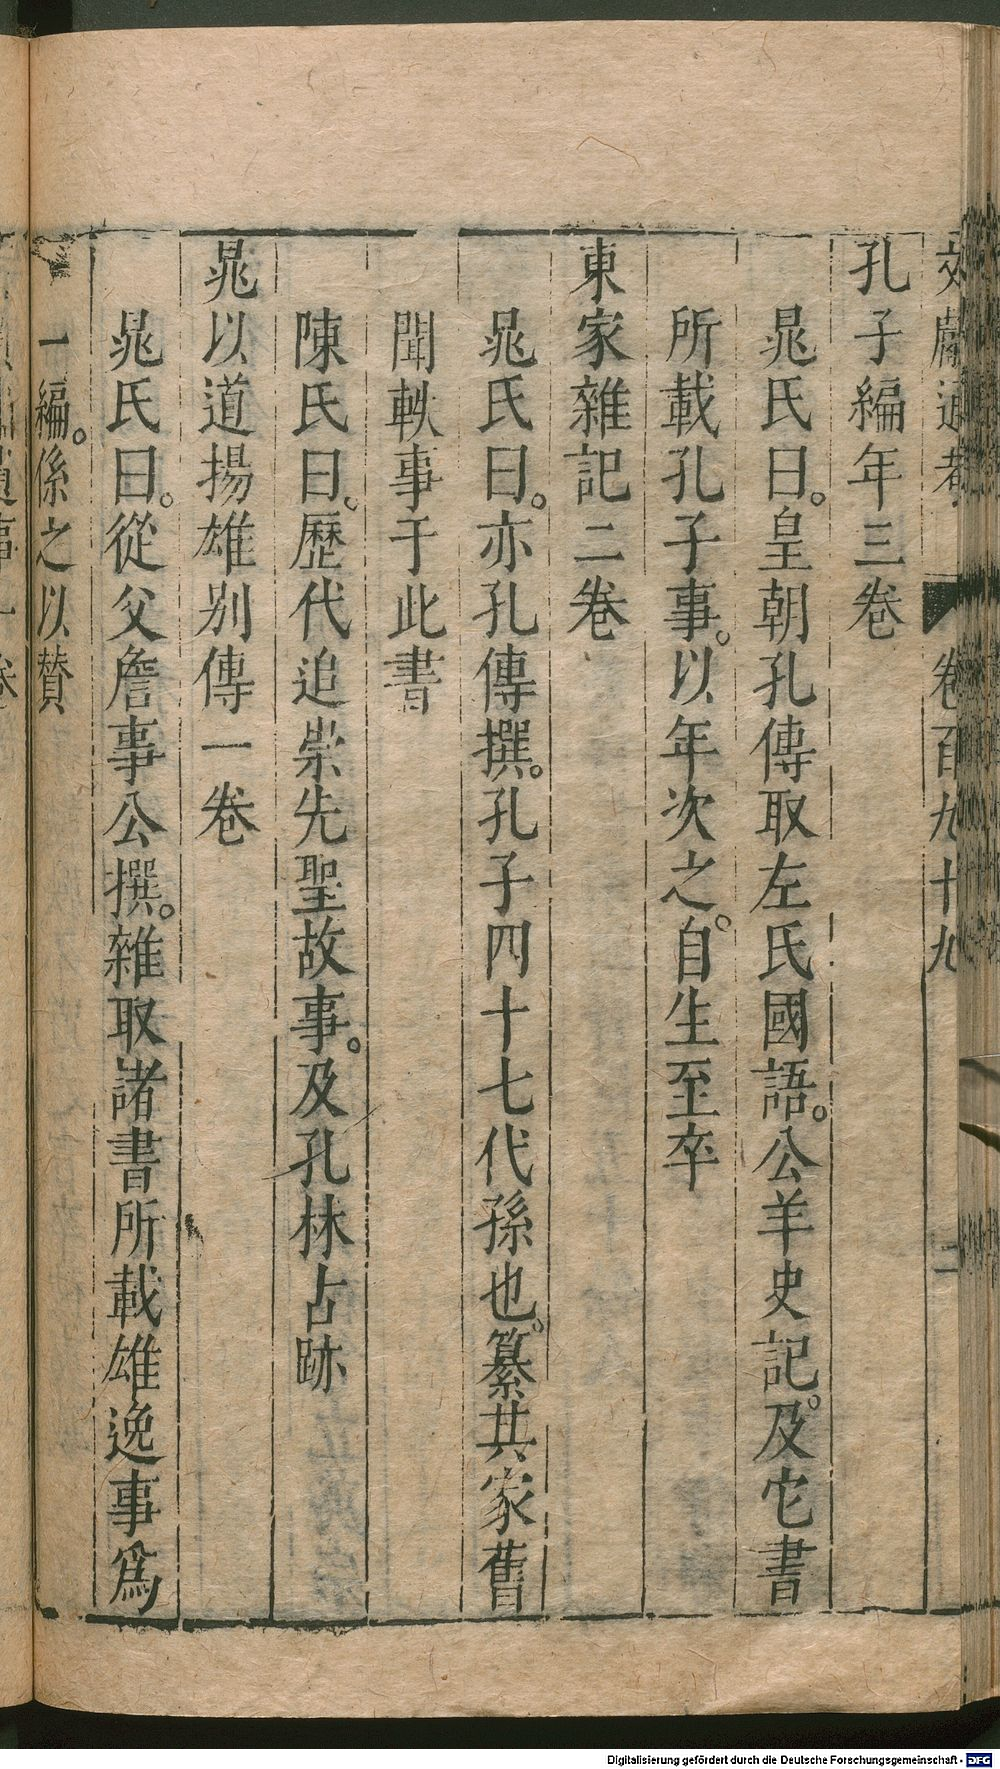 文獻通考 卷百九十九 二
孔子編年三卷
晁氏曰。皇朝孔傳取左氏國語。公羊史記。及它書
所載孔子事。以年次之。自生至卒
東家雜記二卷
晁氏曰。亦孔傳撰。孔子四十七代孫也。纂其家舊
聞軼事于此書
陳氏曰。歷代追崇先聖故事。及孔林占跡
晁以道揚雄別傳一卷
晁氏曰。從父詹事公撰。雜取諸書所載雄逸事爲
一編。係之以贊
Digitalisierung gefördert durch die Deutsche Forschungsgemeinschaft - DFG